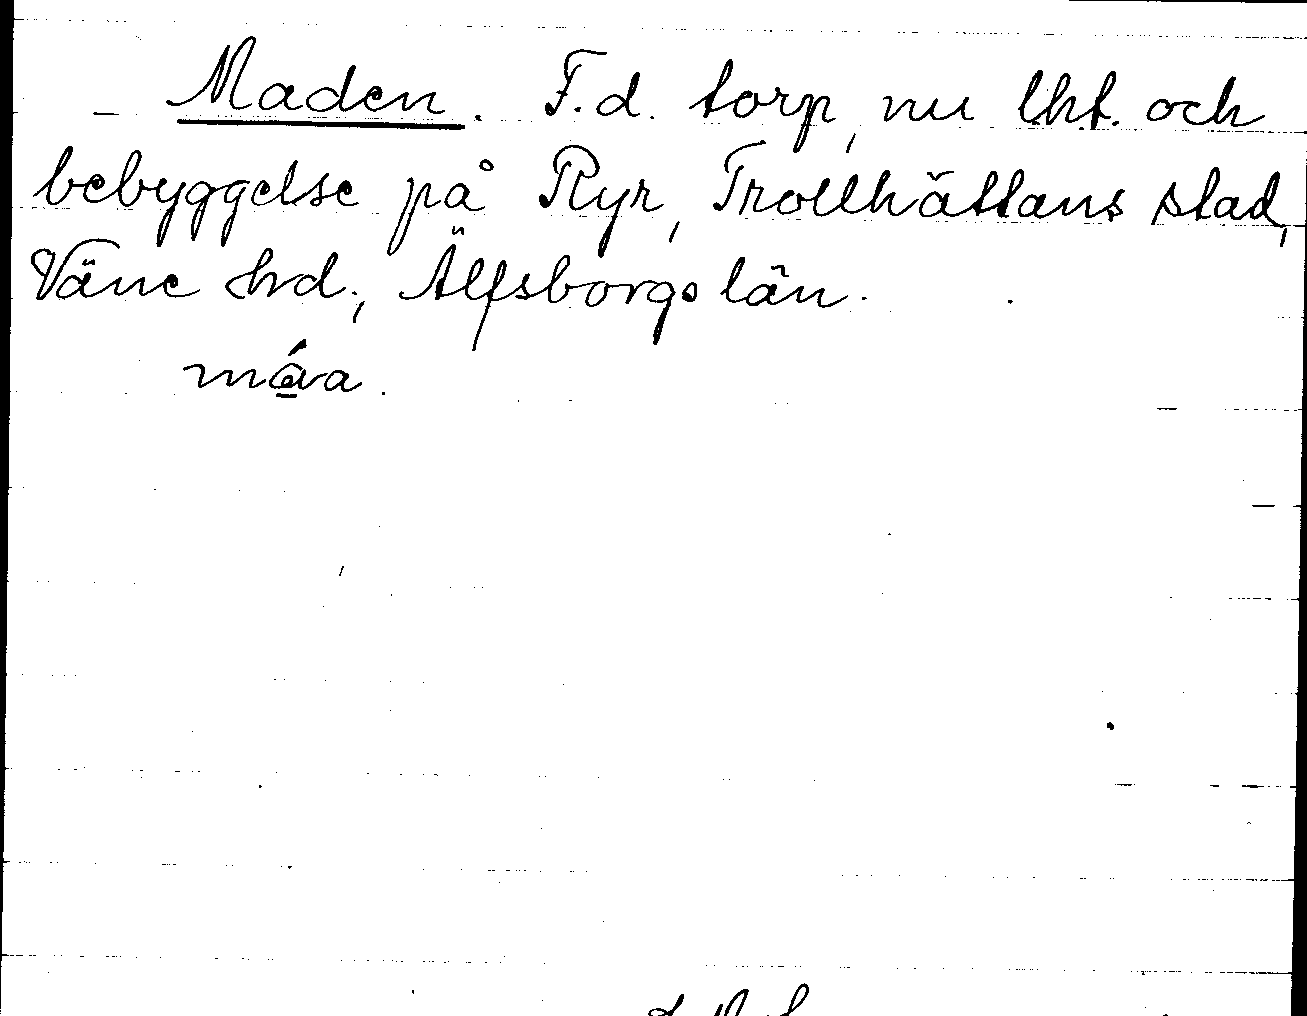 Maden. F.d. torp, nu lht. och
bebyggelse på Ryr, Trollhättans stad,
Väne hrd., Älfsborgs län.